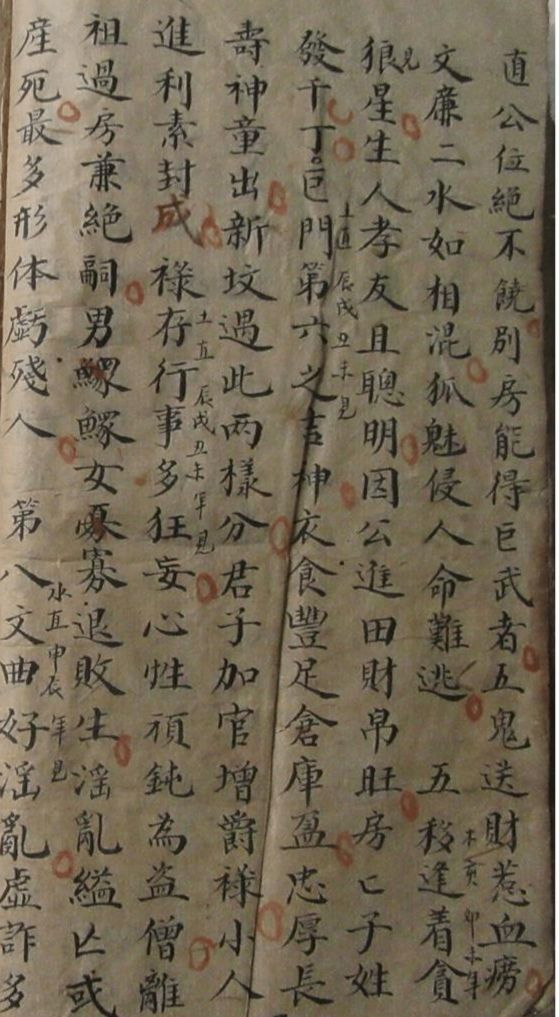 直公位絶不饒別房能得巨武者五鬼送財惹血癆
文廉二水如相混狐魅侵人命難逃　五移逢着貪
木亥卯未年見
狼星生人孝友且聰明因公進田財帛旺房亡子姓
發千丁巨門第六之吉神衣食豐足倉庫盈忠厚長
土直辰戌丑未見
壽神童出新坟過此两樣分君子加官增爵祿小人
進利素封成祿存行事多狂妄心性頑鈍為盜僧離
土直辰戌丑未年見
祖過房兼絶嗣男鰥鰥女寡退敗生淫亂縊亡或
産死最多形体虧殘人　第八文曲好淫亂虛詐多
水直申辰年見